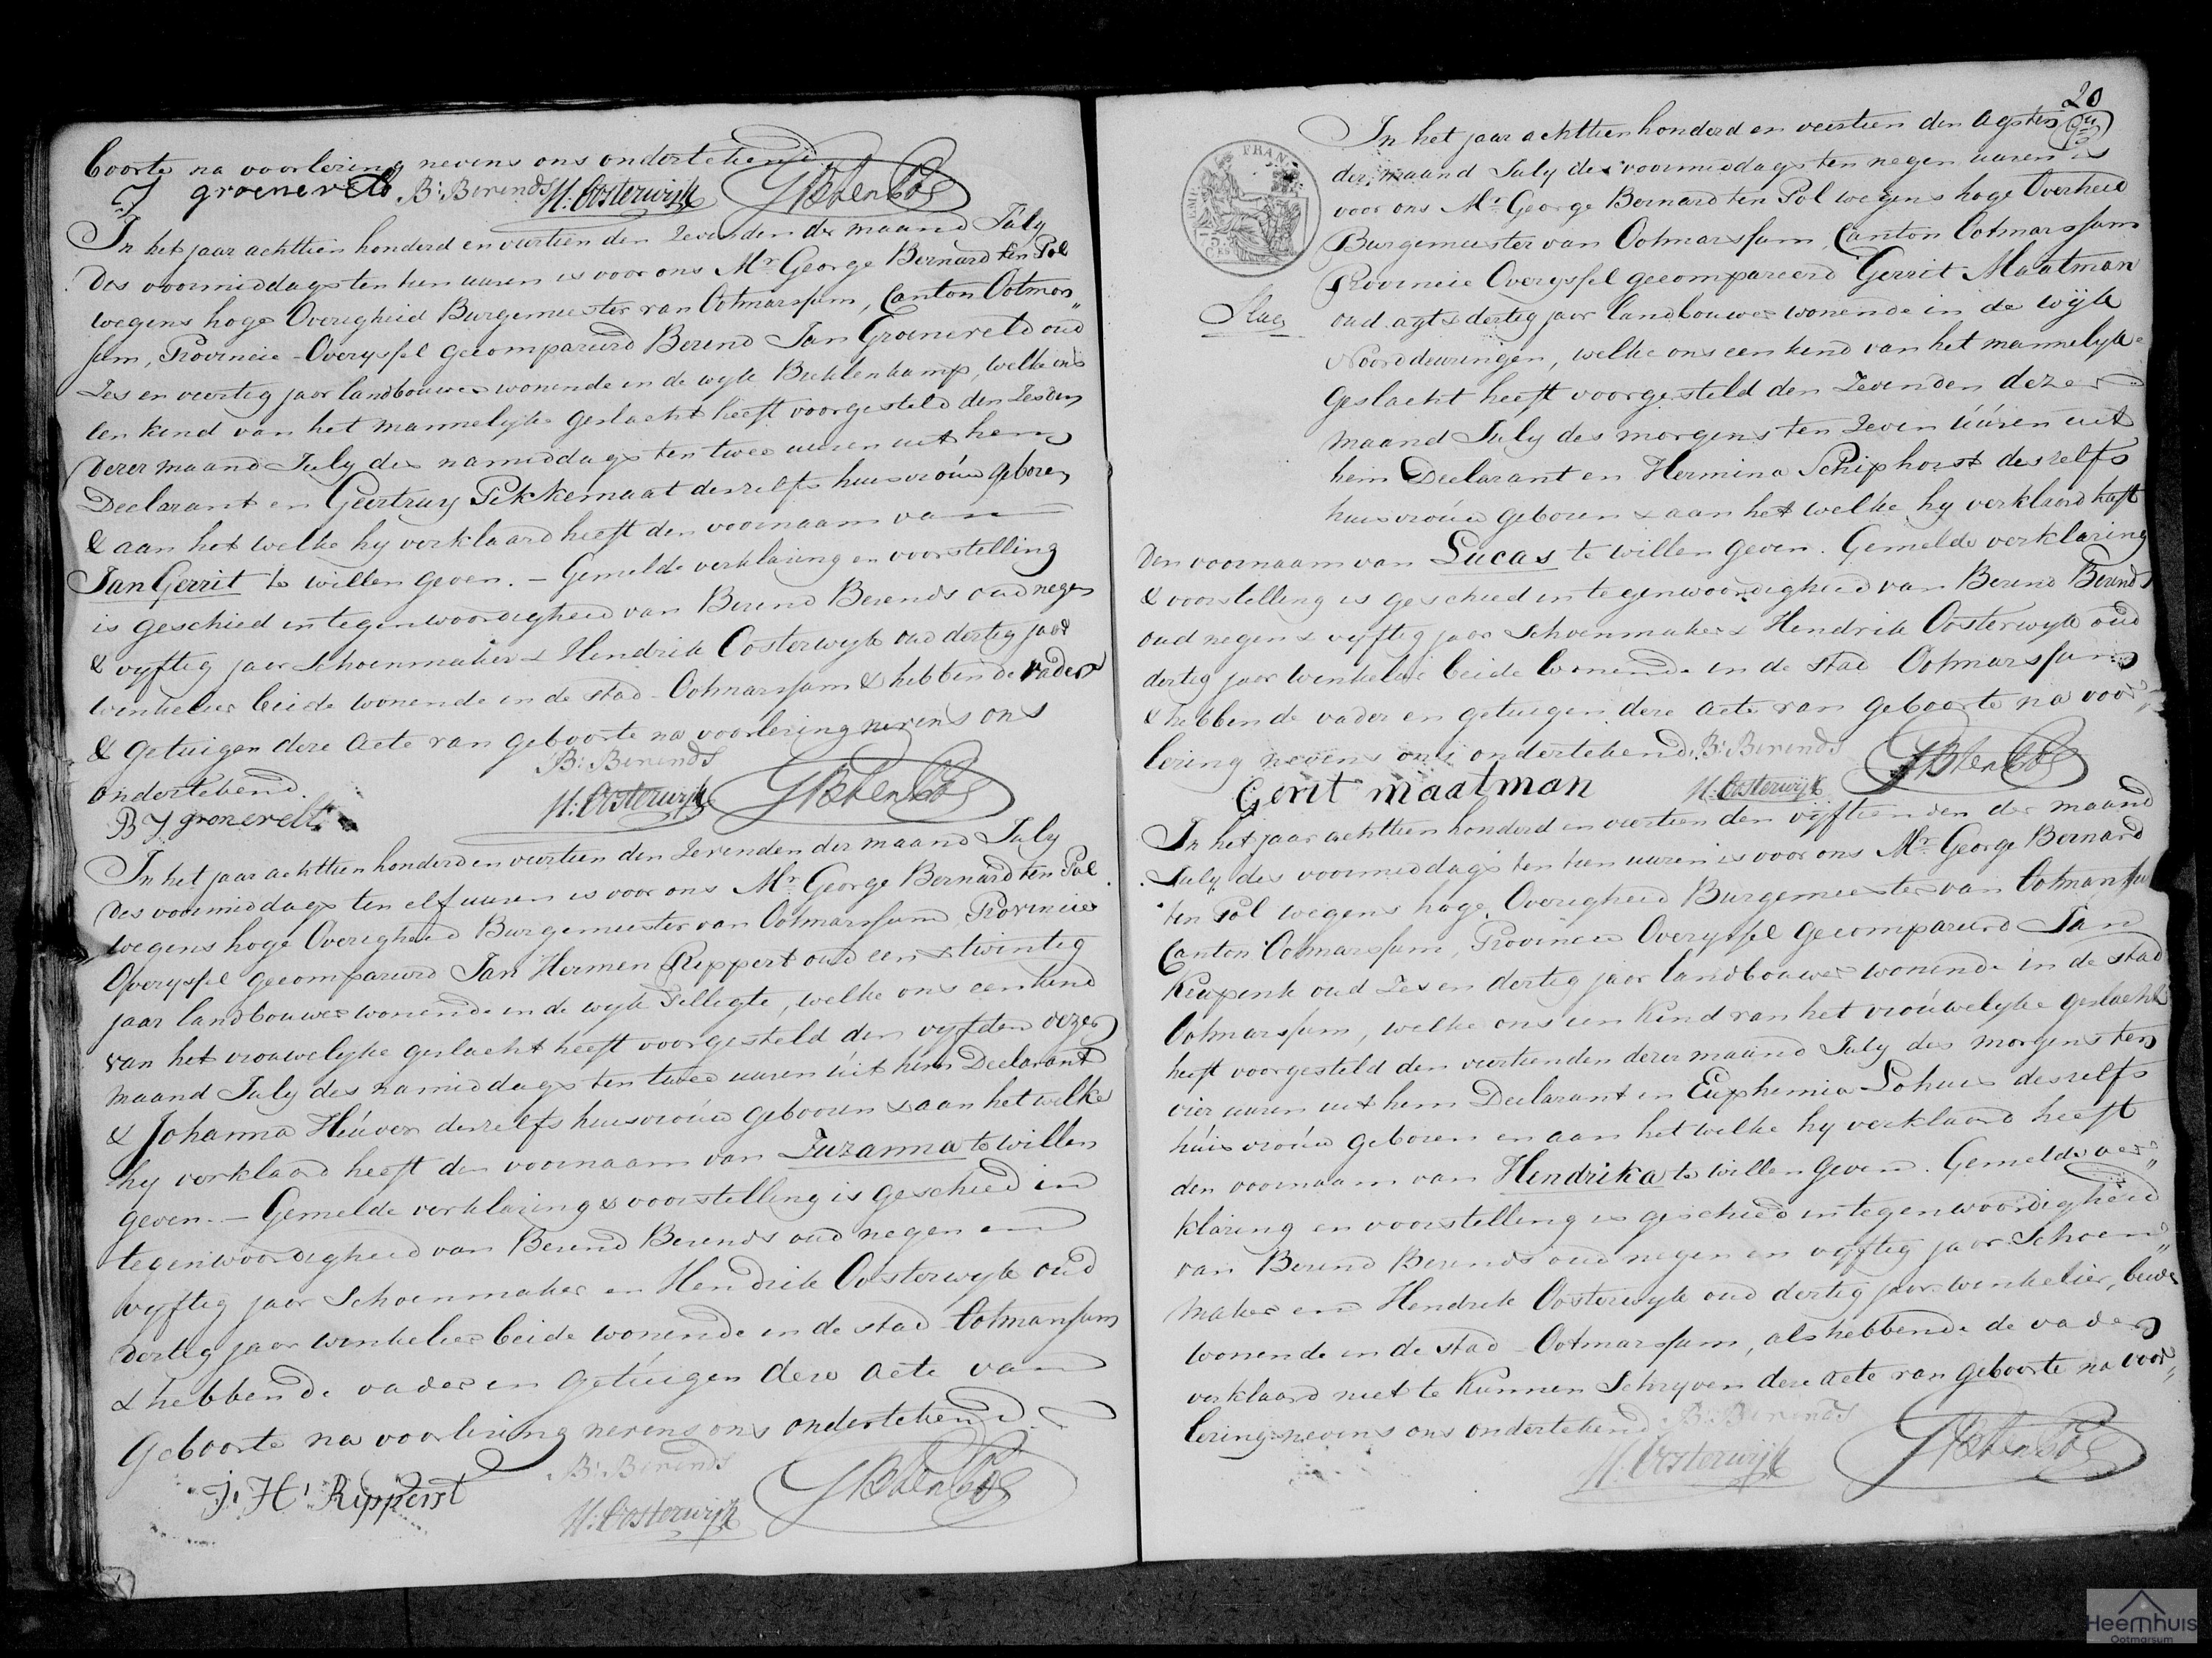 boorte na voorlezing nevens ons ondertekend.
J groeneveld B: Berends H: Oosterwijk GBtenPol
In het jaar achttien honderd en veertien den Zevenden der maand July
des voormiddags ten tien uuren is voor ons Mr George Bernard ten Pol
wegens hoge Overigheid Burgemeester van Ootmarssum, Canton Ootmars„
sum, Provincie Overyssel gecompareerd Berend Jan Groeneveld oud
Zes en veertig jaar landbouwer wonende in de wyk Bucklenkamp, welke ons
een kind van het mannelyke geslacht heeft voorgesteld den Zesden
dezer maand July des namiddags ten twee uuren uit hem
Declarant en Geertruy Pikkemaat deszelfs huisvroúw geboren
& aan het welke hy verklaard heeft den voornaam van
Jan Gerrit te willen geven. – Gemelde verklaring en voorstelling
is geschied in tegenwoordigheid van Berend Berends oud negen
& vyftig jaar Schoenmaker & Hendrik Oosterwyk oud dertig jaar
winkelier beide wonende in de stad Ootmarssum & hebben de vader
& getuigen deze acte van geboorte na voorlezing nevens ons
ondertekend. B: Berends
B J gronevelt H: Oosterwijk GBtenPol
In het jaar achttien honderd en veertien den Zevenden der maand July
des voormiddags ten elf uuren is voor ons Mr George Bernard ten Pol
wegens hoge Overigheid Burgemeester van Ootmarssum Provincie
Overyssel gecompareerd Jan Hermen Rippert oud een & twintig
jaar landbouwer wonende in de wyk Tilligte, welke ons een kind
van het vrouwelyke geslacht heeft voorgesteld den vyfden dezer
maand July des namiddags ten twee uuren úit hem Declarant
& Johanna Heúver deszelfs huisvroúw gebooren & aan het welke
hy verklaard heeft den voornaam van Zuzanna te willen
geven. – Gemelde verklaring & voorstelling is geschied in
tegenwoordigheid van Berend Berends oud negen en
vyftig jaar Schoenmaker en Hendrik Oosterwyk oud
dertig jaar winkelier beide wonende in de stad Ootmarssum
& hebben de vader en getúigen deze acte van
Geboorte na voorlezing nevens ons ondertekend.
J: H: Rippert B: Berends
H: Oosterwijk GBtenPol
20
In het jaar achttien honderd en veertien den agsten
der maand July des voormiddags ten negen uuren is
voor ons Mr George Bernard ten Pol wegens hoge Overheid
Burgemeester van Ootmarssum, Canton Ootmarssum
Provincie Overyssel gecompareerd Gerrit Maatman
oud agt & dertig jaar landbouwer wonende in de wyk
Noorddeuringen, welke ons een kend van het mannelyke
geslacht heeft voorgesteld den Zevenden dezer
maand July des morgens ten Zeven úúren uit
hem Declarant en Hermina Schiphorst deszelfs
huisvroúw geboren & aan het welke hy verklaard heeft
den voornaam van Lucas te willen geven. Gemelde verklaring
& voorstelling is geschied in tegenwoordigheid van Berend Berends
oud negen & vyftig jaar Schoenmaker & Hendrik Oosterwyk oud
dertig jaar winkelier beide wonende in de stad Ootmarssum
& hebben de vader en getuigen deze acte van geboorte na voor„
lezing nevens ons ondertekend. B: Berends
Gerit maatman H: Oosterwijk GBtenPol
In het jaar achttien honderd en veertien den vyftienden der maand
July des voormiddags ten tien uuren is voor ons Mr George Bernard
ten Pol wegens hoge Overigheid Burgemeester van Ootmarssum
Canton Ootmarssum, Provincie Overyssel gecompareerd Jan
Kuipink oud Zes en dertig jaar landbouwer wonende in de stad
Ootmarssum, welke ons een kind van het vroúwelyke geslacht
heeft voorgesteld den veertienden dezer maand July des morgens ten
vier uuren uit hem Declarant en Euphemia Lohuis deszelfs
húisvroúw geboren en aan het welke hy verklaard heeft
den voornaam van Hendrika te willen geven. Gemelde ver„
klaring en voorstelling is geschied in tegenwoordigheid
van Berend Berends oud negen en vyftig jaar Schoen„
maker en Hendrik Oosterwyk oud dertig jaar winkelier, beide
wonende in de stad Ootmarssum, als hebbende de vader
verklaard niet te kunnen Schryven deze acte van geboorte na voor„
lezing nevens ons ondertekend B: Berends
H: Oosterwijk GBtenPol
FRAN
75
Heemhuis
Ootmarsum